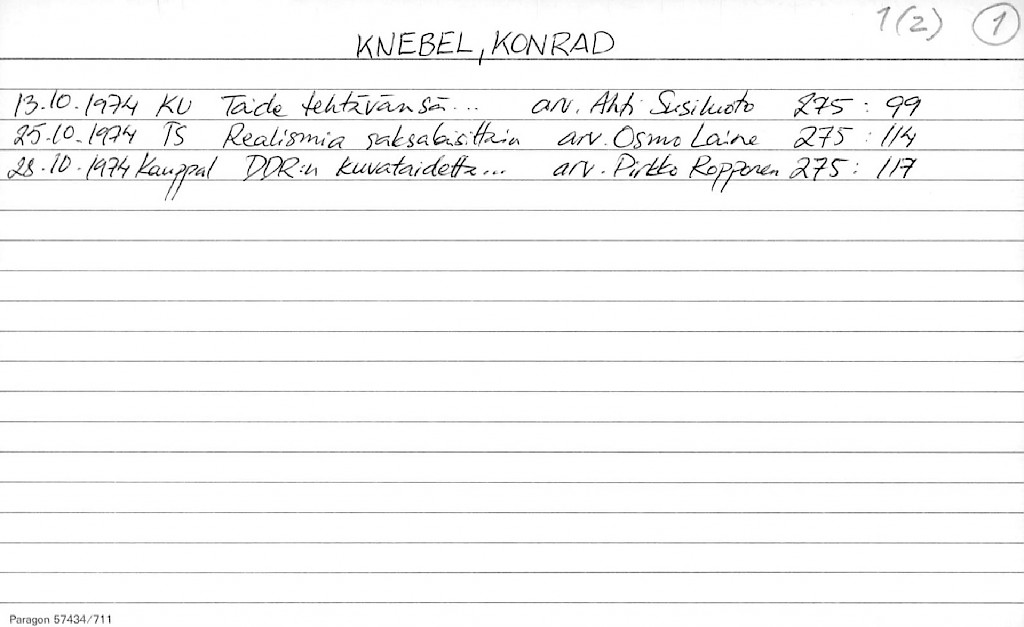 1(2) 1
KNEBEL, KONRAD
13.10.1974 KU Taide tehtävänsä... arv. Ahti Susiluoto 275: 99
25.10.1974 TS Realismia saksalaisittain arv. Osmo Laine 275: 114
28.10.1974 Kauppal DDR:n kuvataidetta... arv. Pirkko Ropponen 275: 117
Paragon 57434/711